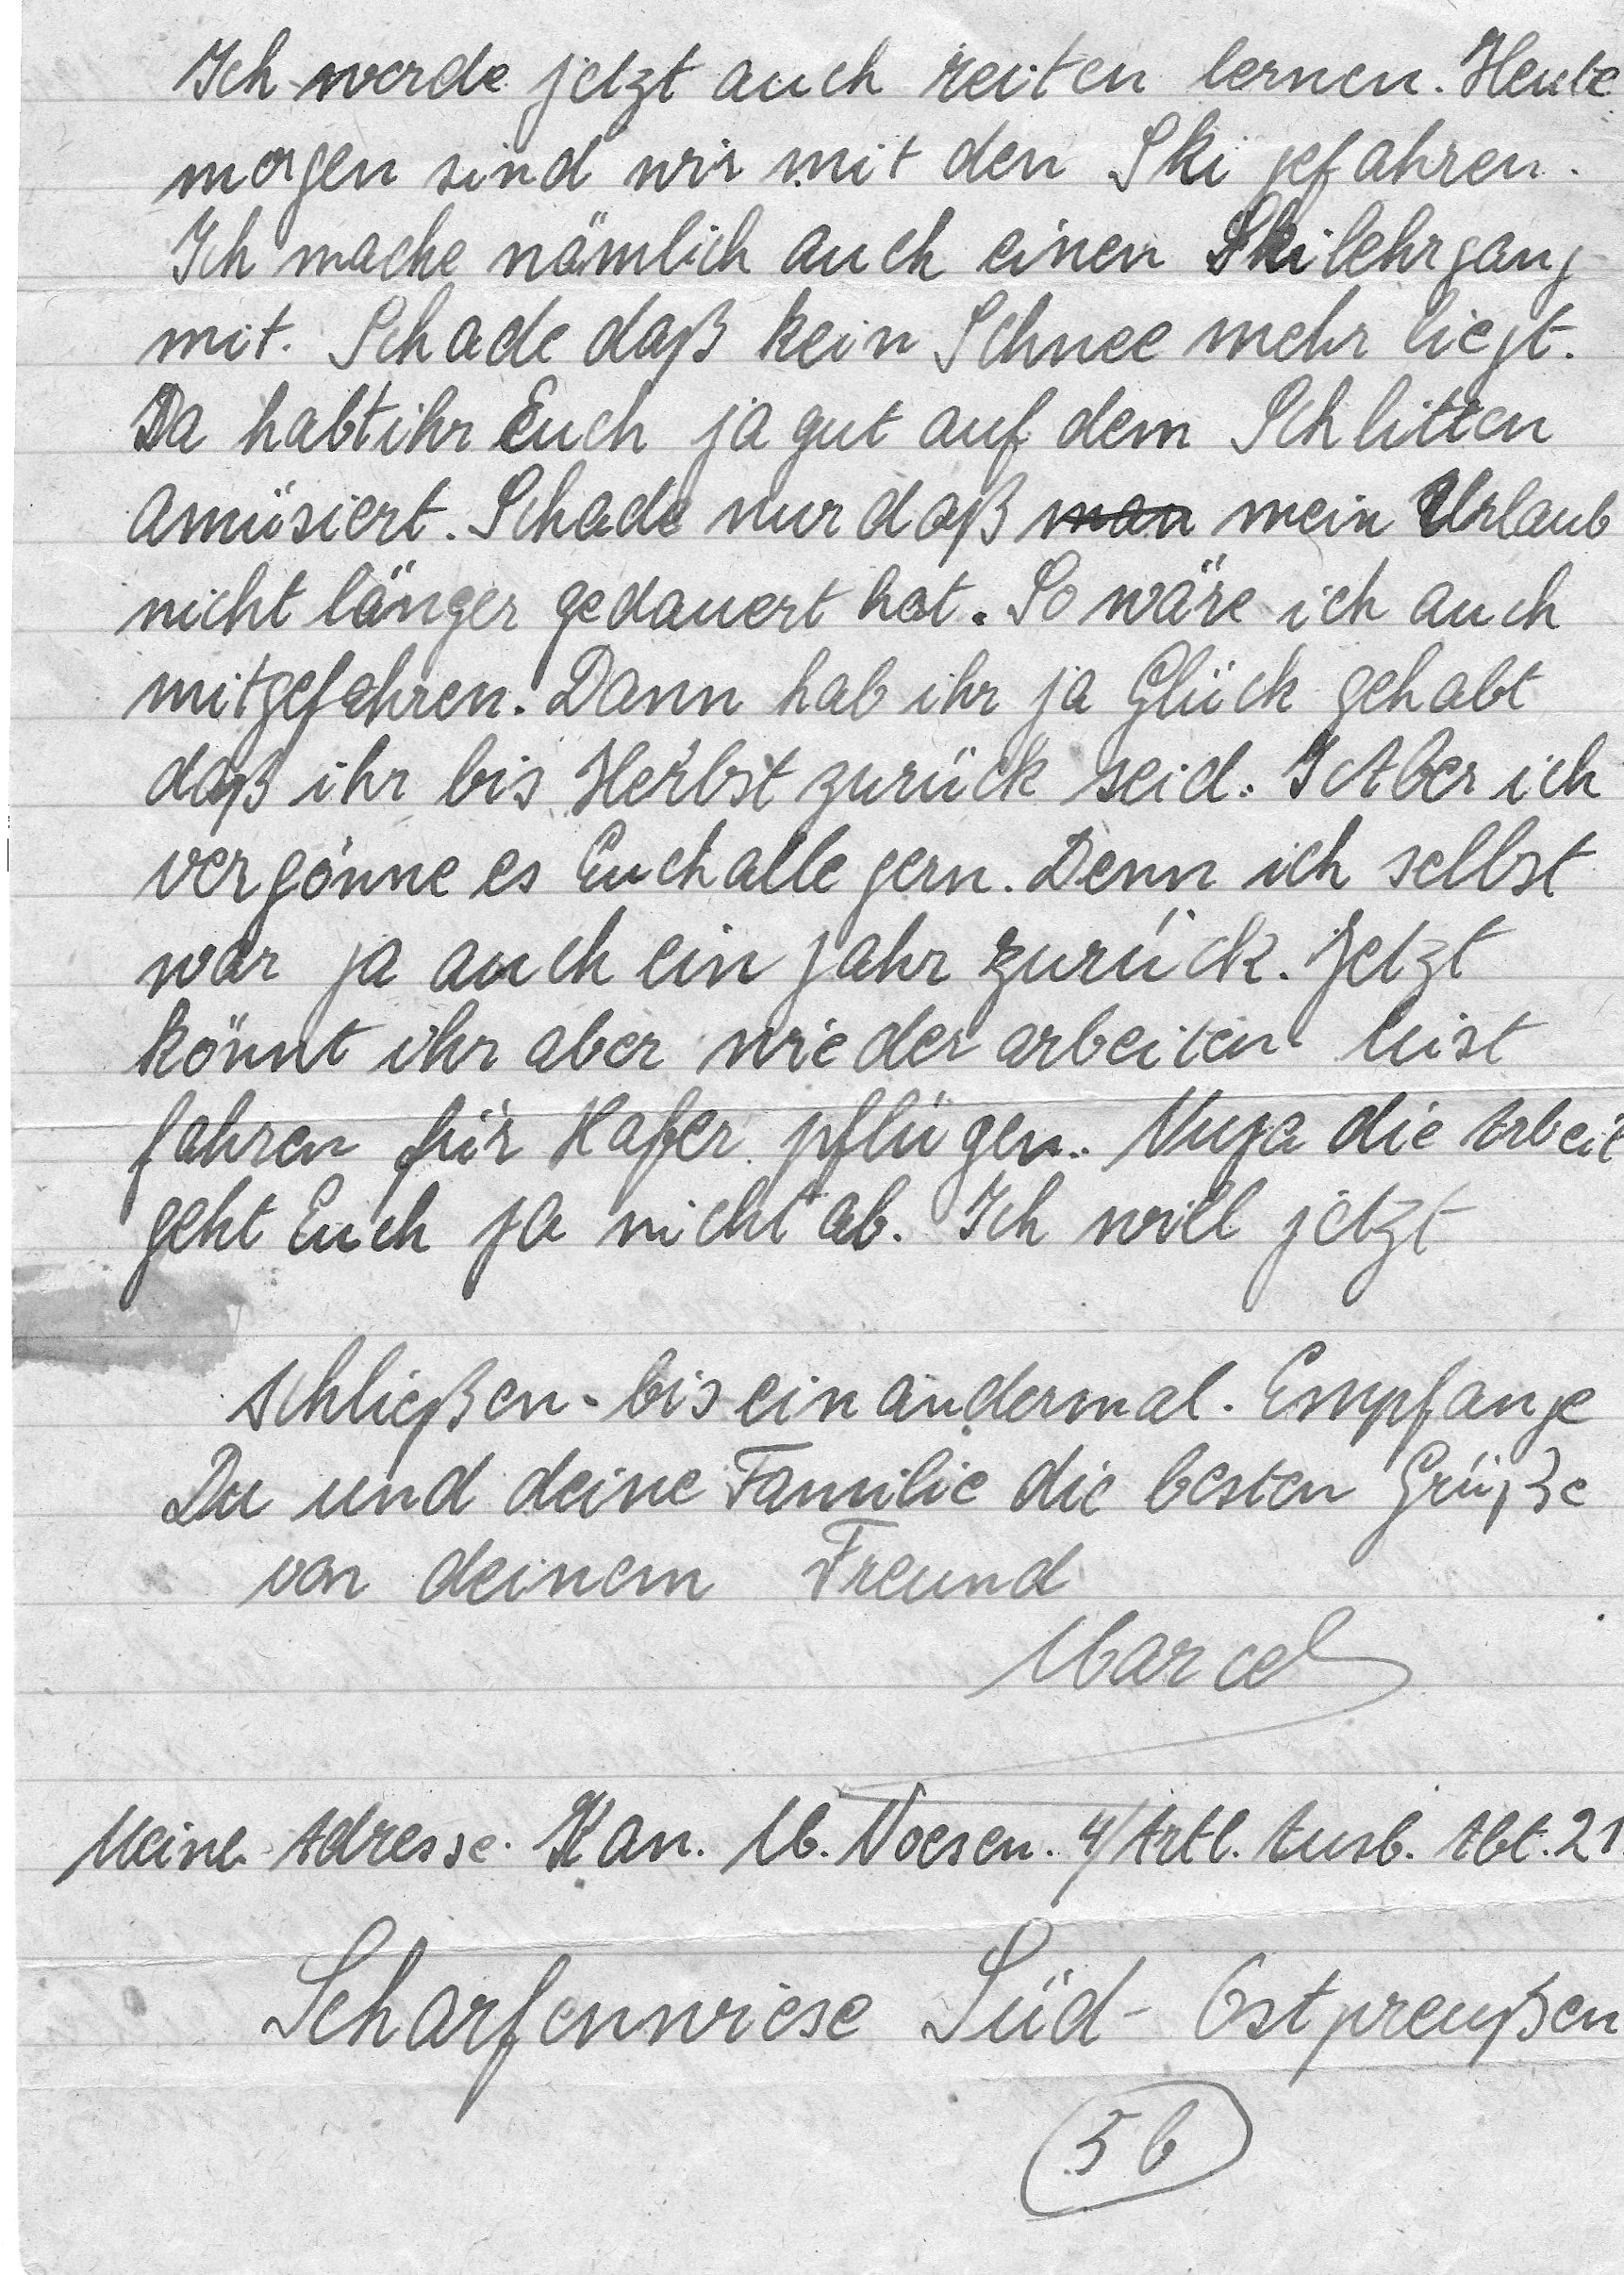 Ich werde jetzt auch reiten lernen. Heute
morgen sind wir mit den Ski gefahren.
Ich mache nämlich auch einen Skilehrgang
mit. Schade daß kein Schnee mehr liegt.
Da habt ihr Euch ja gut auf dem Schlitten
amüsiert. Schade nur daß man mein Urlaub
nicht länger gedauert hat. So wäre ich auch
mitgefahren. Dann hab ihr ja Glück gehabt
daß ihr bis Herbst zurück seid. Aber ich
vergönne es Euch alle gern. Denn ich selbst
war ja auch ein Jahr zurück. Jetzt
könnt ihr aber wieder arbeiten Mist
fahren für Hafer pflügen. Nuja die Arbeit
geht Euch ja nicht ab. Ich will jetzt
schließen. bis ein andermal. Empfange
Du und deine Familie die besten Grüße
von deinem Freund
Marcel
Meine Adresse. Kan. M. Noesen. 4/Artl. Ausb. Abt. 21.
Scharfenwiese Süd-Ostpreußen
(5b)